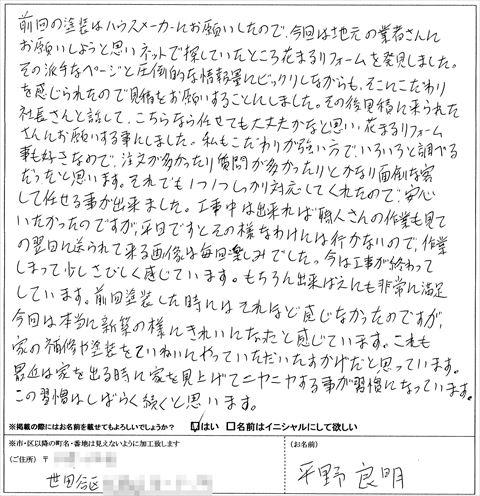 前回の塗装はハウスメーカーにお願いしたので、今回は地元の業者さんに
お願いしようと思いネットで探していたところ花まるリフォームを発見しました。
その派手なページと圧倒的な情報量にビックリしながらも、そこにこだわり
を感じられたので見積をお願いすることにしました。その後見積に来られた
社長さんと話して、こちらなら任せても大丈夫かなと思い、花まるリフォーム
さんにお願いする事にしました。私もこだわりが強い方で、いろいろと調べる
事も好きなので、注文が多かったり質問が多かったりとかなり面倒な客
だったと思います。それでも1つ1つしっかり対応してくれたので、安心
して任せる事が出来ました。工事中は出来れば職人さんの作業も見て
いたかったのですが、平日ですとその様なわけには行かないので、作業
の翌日に送られて来る画像は毎回楽しみでした。今は工事が終わって
しまって少しさびしく感じています。もちろん出来ばえにも非常に満足
しています。前回塗装した時にはそれほど感じなかったのですが、
今回は本当に新築の様にきれいになったと感じています。これも
家の補修や塗装をていねいにやっていただいたおかげだと思っています。
最近は家を出る時に家を見上げてニヤニヤする事が習慣になっています。
この習慣はしばらく続くと思います。
※掲載の際にはお名前を載せてもよろしいでしょうか？ ☑はい □名前はイニシャルにして欲しい
※市・区以降の町名・番地は見えないように加工致します
（ご住所） 〒
世田谷区
（お名前）
平野 良明